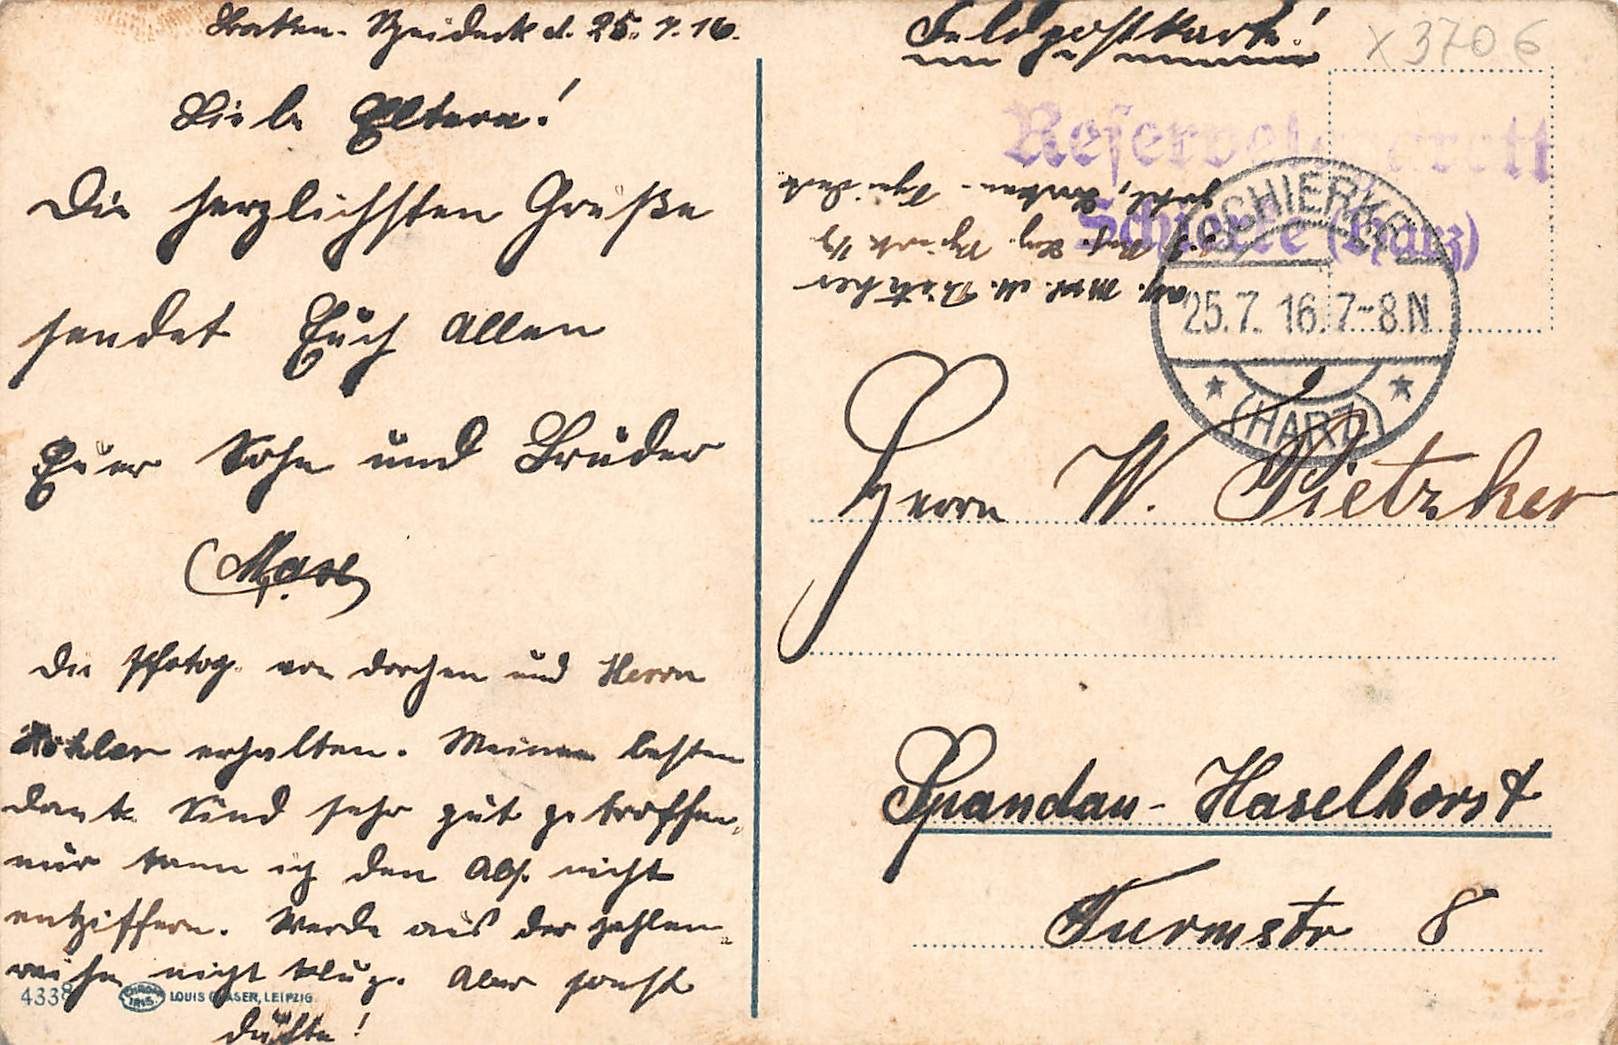 d. 25.7.16.
Liebe Eltern!
Die herzlichsten Grüße
sendet Euch allen
Euer Sohn und Bruder
Max
Die Photog. von Dorchen und Herrn
Köhler erhalten. Meinen besten
Dank. Sind sehr gut getroffen,
nur kann ich den Abs. nicht
entziffern. Werde aus der Zahlen-
reihe nicht klug. Aber sonst
dufte!
4338 LOUIS GLASER, LEIPZIG
Feldpostkarte!
X 3706
Reservelazarett
Schierke (Harz)
SCHIERKE
25.7.16.7-8.N
(HARZ)
Abs. M. Pietzker
Herrn W. Pietzker
Spandau-Haselhorst
Turmstr 8